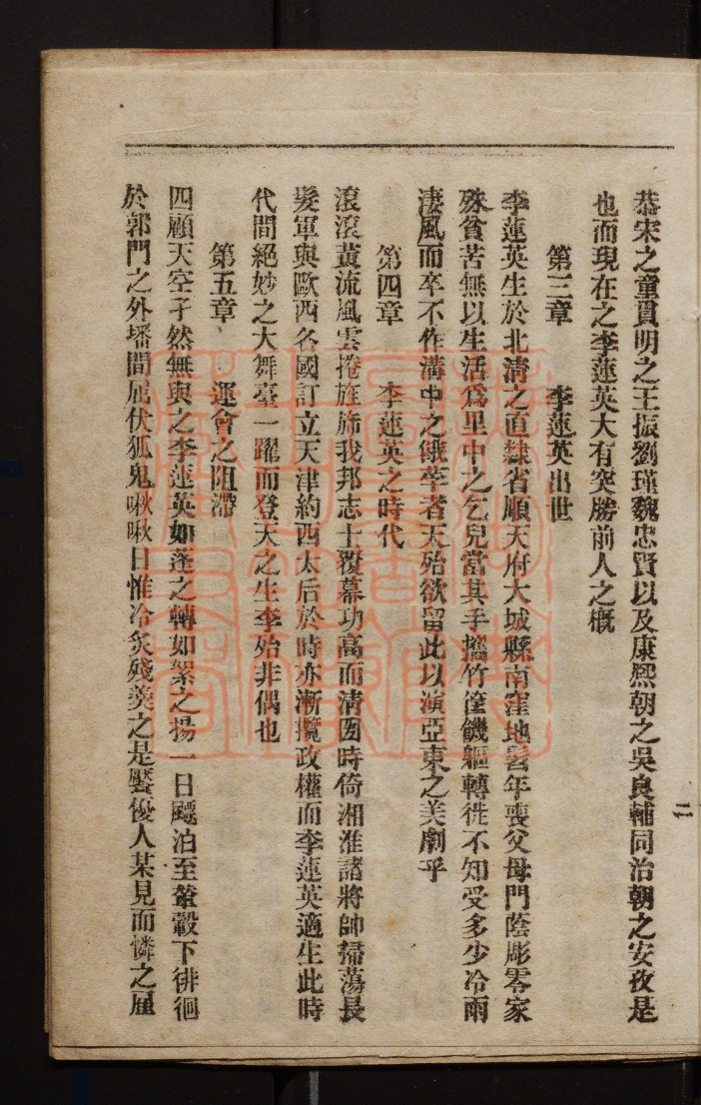 恭宋之童貫明之王振劉瑾魏忠賢以及康熙朝之吳良輔同治朝之安孜是
也而現在之李蓮英大有突勝前人之概
第三章　李蓮英出世
李蓮英生於北淸之直隸省順天府大城縣南窪地髫年喪父母門蔭彫零家
殊貧苦無以生活爲里中之乞兒當其手攜竹筐饑軀轉徙不知受多少冷雨
淒風而卒不作溝中之餓莩者天殆欲留此以演亞東之美劇乎
第四章　李蓮英之時代
滾滾黃流風雲捲旌旆我邦志士覆幕功高而淸國時倚湘淮諸將帥掃蕩長
髮軍與歐西各國訂立天津約西太后於時亦漸攬政權而李蓮英適生此時
代間絕妙之大舞臺一躍而登天之生李殆非偶也
第五章　運會之阻滯
四顧天空孑然無與之李蓮英如蓬之轉如絮之揚一日飄泊至輦轂下徘徊
於郭門之外墦間屈伏狐鬼啾啾日惟冷炙殘羹之是饜優人某見而憐之厘
二